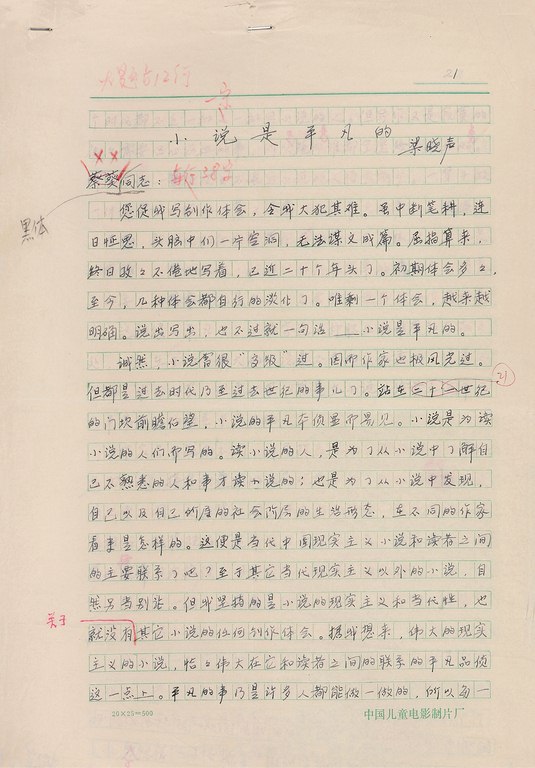 大题占12行
21
小说是平凡的
梁晓声
蔡葵同志：
每行38字
黑体
您促我写创作体会，令我大犯其难。虽中断笔耕，连
日怔思，头脑中仍一片空洞，无法谋文成篇。屈指算来，
终日孜孜不倦地写着，已近二十个年头了。初期体会多多，
至今，几种体会都自行的淡化了。唯剩一个体会，越来越
明确。说出写出，也不过就一句话——小说是平凡的。
诚然，小说曾很“高级”过。因而作家也极风光过。
但都是过去时代乃至过去世纪的事儿了。站在二十一世纪
21
的门坎前瞻后望，小说的平凡本质显而易见。小说是为读
小说的人们而写的。读小说的人，是为了从小说中了解自
己不熟悉的人和事才读小说的；也是为了从小说中发现，
自己以及自己所属的社会阶层的生活形态，在不同的作家
看来是怎样的。这便是当代中国现实主义小说和读者之间
的主要联系了吧？至于其它当代现实主义以外的小说，自
然另当别论。但我坚持的是小说的现实主义和当代性，也
关于
就没有其它小说的任何创作体会。据我想来，伟大的现实
主义的小说，恰恰伟大在它和读者之间的联系的平凡品质
这一点上。平凡的事乃是许多人都能做一做的，所以每一
20×25=500
中国儿童电影制片厂